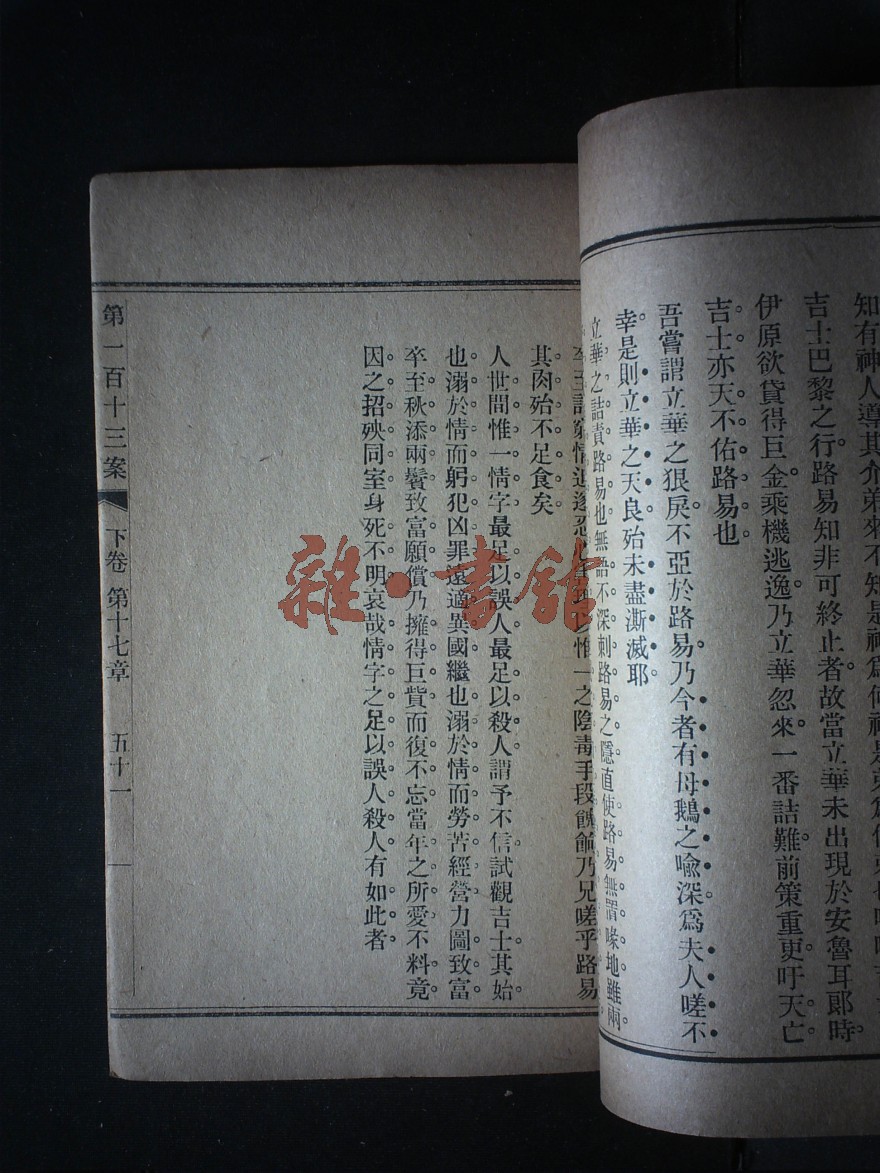 吉士巴黎之行路易知非可終止者故當立華未出現於安魯耳郎時
伊原欲貸得巨金乘機逃逸乃立華忽來一番詰難前策重更吁天亡
吉士亦天不佑路易也
吾嘗謂立華之狠戾不亞於路易乃今者有母鵝之喻深爲夫人嗟不
幸是則立華之天良殆未盡澌滅耶
立華之詰責路易也無語不深刺路易之隱直使路易無置喙地雖兩
以惟一之陰毒手段餽餉乃兄嗟乎路易
其肉殆不足食矣
人世間惟一情字最足以誤人最足以殺人謂予不信試觀吉士其始
也溺於情而躬犯凶罪遠適異國繼也溺於情而勞苦經營力圖致富
卒至秋添兩鬢致富願償乃擁得巨貲而復不忘當年之所愛不料竟
因之招殃同室身死不明哀哉情字之足以誤人殺人有如此者
第一百十三案 下卷 第十七章 五十一
雜·書館